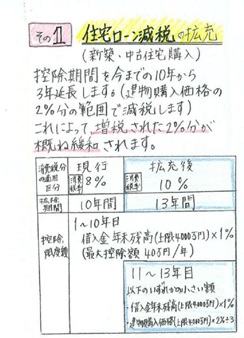 その1 住宅ローン減税の拡充
(新築、中古住宅購入)
控除期間を今までの10年から
3年延長します。(建物購入価格の
2%分の範囲で減税します)
これによって、増税された2%分が
概ね緩和されます。
現行 拡充後
区分 消費税率8% 消費税率10%
控除期間 10年間 13年間
控除限度額
1〜10年目
借入金年末残高(上限4000万円)×1%
(最大控除額40万/年)
11〜13年目
以下のいずれか小さい額
・借入金年末残高(上限4000万円)×1%
・建物購入価格(上限4000万円)×2%÷3